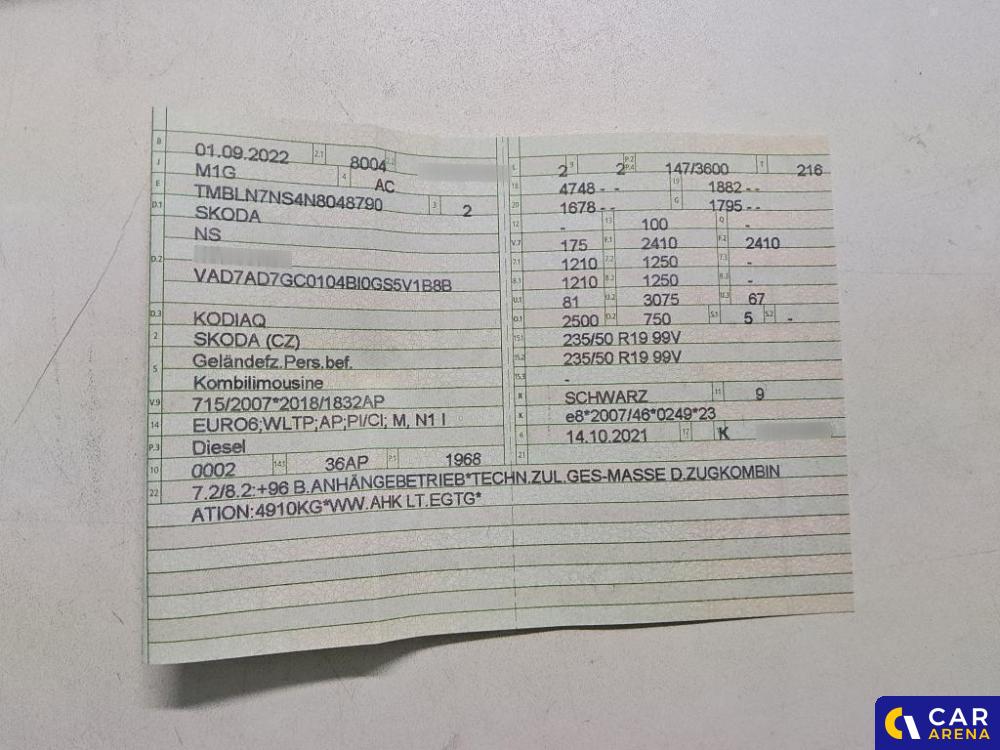 B 01.09.2022 2.1 8004 2.2
J M1G 4 AC
E TMBLN7NS4N8048790 3 2
D.1 SKODA
NS
D.2
VAD7AD7GC0104BI0GS5V1B8B
D.3 KODIAQ
2 SKODA (CZ)
5 Geländefz.Pers.bef.
Kombilimousine
V.9 715/2007*2018/1832AP
14 EURO6;WLTP;AP;PI/CI; M, N1 I
P.3 Diesel
10 0002 14.1 36AP P.1 1968
L 2 9 2 P.2 P.4 147/3600 T 216
18 4748 - - 19 1882 - -
20 1678 - - G 1795 - -
12 - 13 100 Q -
V.7 175 F.1 2410 F.2 2410
7.1 1210 7.2 1250 7.3 -
8.1 1210 8.2 1250 8.3 -
U.1 81 U.2 3075 U.3 67
O.1 2500 O.2 750 S.1 5 S.2 -
15.1 235/50 R19 99V
15.2 235/50 R19 99V
15.3 -
R SCHWARZ 11 9
K e8*2007/46*0249*23
6 14.10.2021 17 K
21
22 7.2/8.2:+96 B.ANHÄNGEBETRIEB*TECHN.ZUL.GES-MASSE D.ZUGKOMBIN
ATION:4910KG*WW.AHK LT.EGTG*
CAR
ARENA